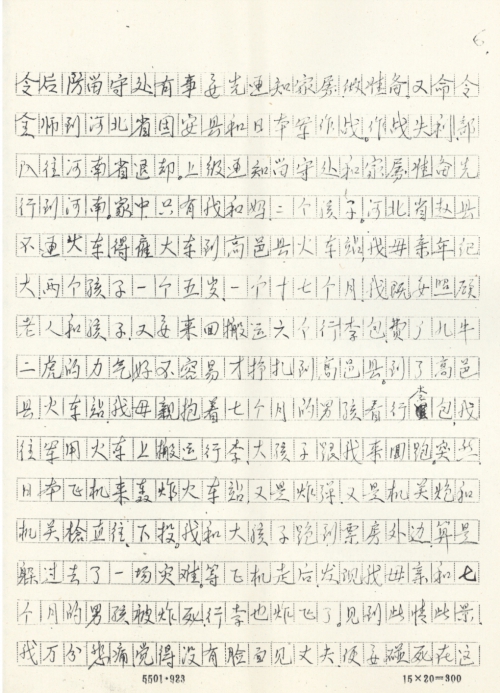 6
令后防留守处有事要先通知家属做准备.又命令
全师到河北省固安县和日本军作战.作战失利.部
队往河南省退却.上级通知留守处和家属准备先
行到河南.家中只有我和妈二个孩子.河北省赵县
不通火车.得雇大车到高邑县火车站.我母亲年纪
大.两个孩子一个五岁.一个十七个月.我既要照顾
老人和孩子.又要来回搬运六个行李包.费了九牛
二虎的力气好不容易才挣扎到高邑县.到了高邑
县火车站.我母亲抱着七个月的男孩看行李包.我
往军用火车上搬运行李.大孩子跟我来回跑.突然.
日本飞机来轰炸火车站.又是炸弹.又是机关炮和
机关枪直往下投.我和大孩子跑到票房外边.算是
躲过去了一场灾难.等飞机走后.发现我母亲和七
个月的男孩被炸死.行李也炸飞了.见到此情此景.
我万分悲痛觉得没有脸面见丈夫.便要碰死在这
5501·923 15×20=300